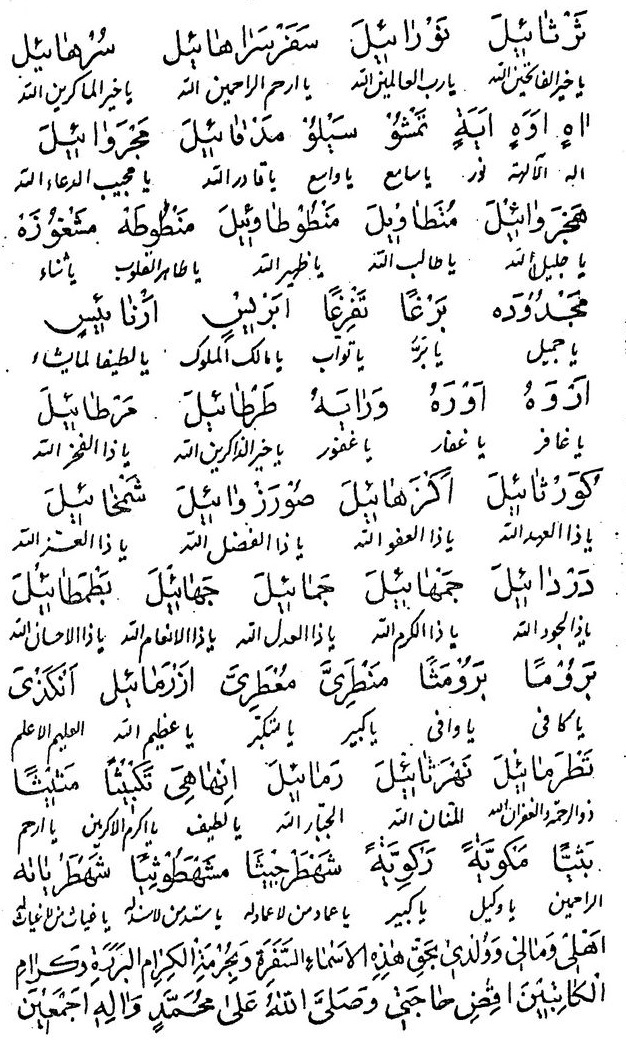 تَرْثَائِيلَ نَوْرَائِيلَ سَفَرْسَرَاهَائِيلَ سُرْهَائِيلَ
يا خير الفاتحين الله يا رب العالمين الله يا ارحم الراحمين الله يا خير الماكرين الله
اهٍ اوَهٍ ايَةٍ نَمْشُوْ سَيْلُوْ مَدْقَائِيلَ مَجْرَوَائِيلَ
اله الآلهة نور يا سامع يا واسع يا قادر الله يا مجيب الدعاء الله
هَجَرَوَائِيلَ مُنَطَاوِيلَ مَنْطُوطَاوِيِيلَ مَنْطُوطَهْ مَشْغُوْزَهْ
يا جليل الله يا طالب الله يا ظهير الله يا طاهر القلوب يا ثناء
مَجْدُوْدَه بَرْغًا تَفْرِغًا ابْرَيِسٍ ارْنَائِيسٍ
يا جميل يا بَرُّ يا تواب يا مالك الملوك يا لطيفا لما يشاء
ارْوَهُ اوْرَهُ وَرَايَهُ طَرْطَائِيلَ مَرْطَائِيلَ
يا غافر يا غفار يا غفور يا خير الذاكرين الله يا ذا الفخر الله
كُوَرْثَائِيلَ اَكْرَهَائِيلَ صُوْرَرْوَائِيلَ شَمْخَائِيلَ
يا ذا العهد الله يا ذا العفو الله يا ذا الفضل الله يا ذا العز الله
دَرْدَائِيلَ جَمْهَائِيلَ جَمَائِيلَ جَهَائِيْلَ بَطْمَطَائِيْلَ
يا ذا الجود الله يا ذا الكرم الله يا ذا العدل الله يا ذا الانعام الله يا ذا الاحسان الله
بَرَوُمًا بَرَوُمَثًا مَنْطَرِىَّ مُعْطَرِىَّ ازْرَمَائِيْلِ اَنْكَذْىَ
يا كافى يا وافى يا كبير يا متكبّر يا عظيم الله العليم الاعلم
نَظْرَمَائِيْلَ نَهْرَثَائِيْلَ رَمَائِيلَ اِنْهَاهِىَ تَكْبَيْثًا مَثْيَيْثًا
ذو الرحمة والغفران الله المنان الله الجبّار الله يا لطيف يا اكرم الاكرمين يا ارحم
بَثْيَثًا مَكْوِيَةً رَكْوِيَةً شَهْطَرْجَيْثًا مَشْهَطُوْثِيًا شَهْطَرْيَانَه
الراحمين يا وكيل يا كبير يا عماد من لا عماد له يا سند من لا سند له يا غياث من لا غياث له
اَهْلىٖ وَمَالىٖ وَوُلْدىٖ بِحَقِّ هٰذِهِ الاَسْمَاءِ السَّفَرَةِ وَبِحُرْمَةِ الْكِرَامِ الْبَرَرَةِ وَكِرَامِ
الْكَاتِبِينَ اقْضِ حَاجَتىٖ وَصَلىَّ اللهُ عَلىٰ مُحَمَّدٍ وَاٰلِهٖ اَجْمَعٖينَ